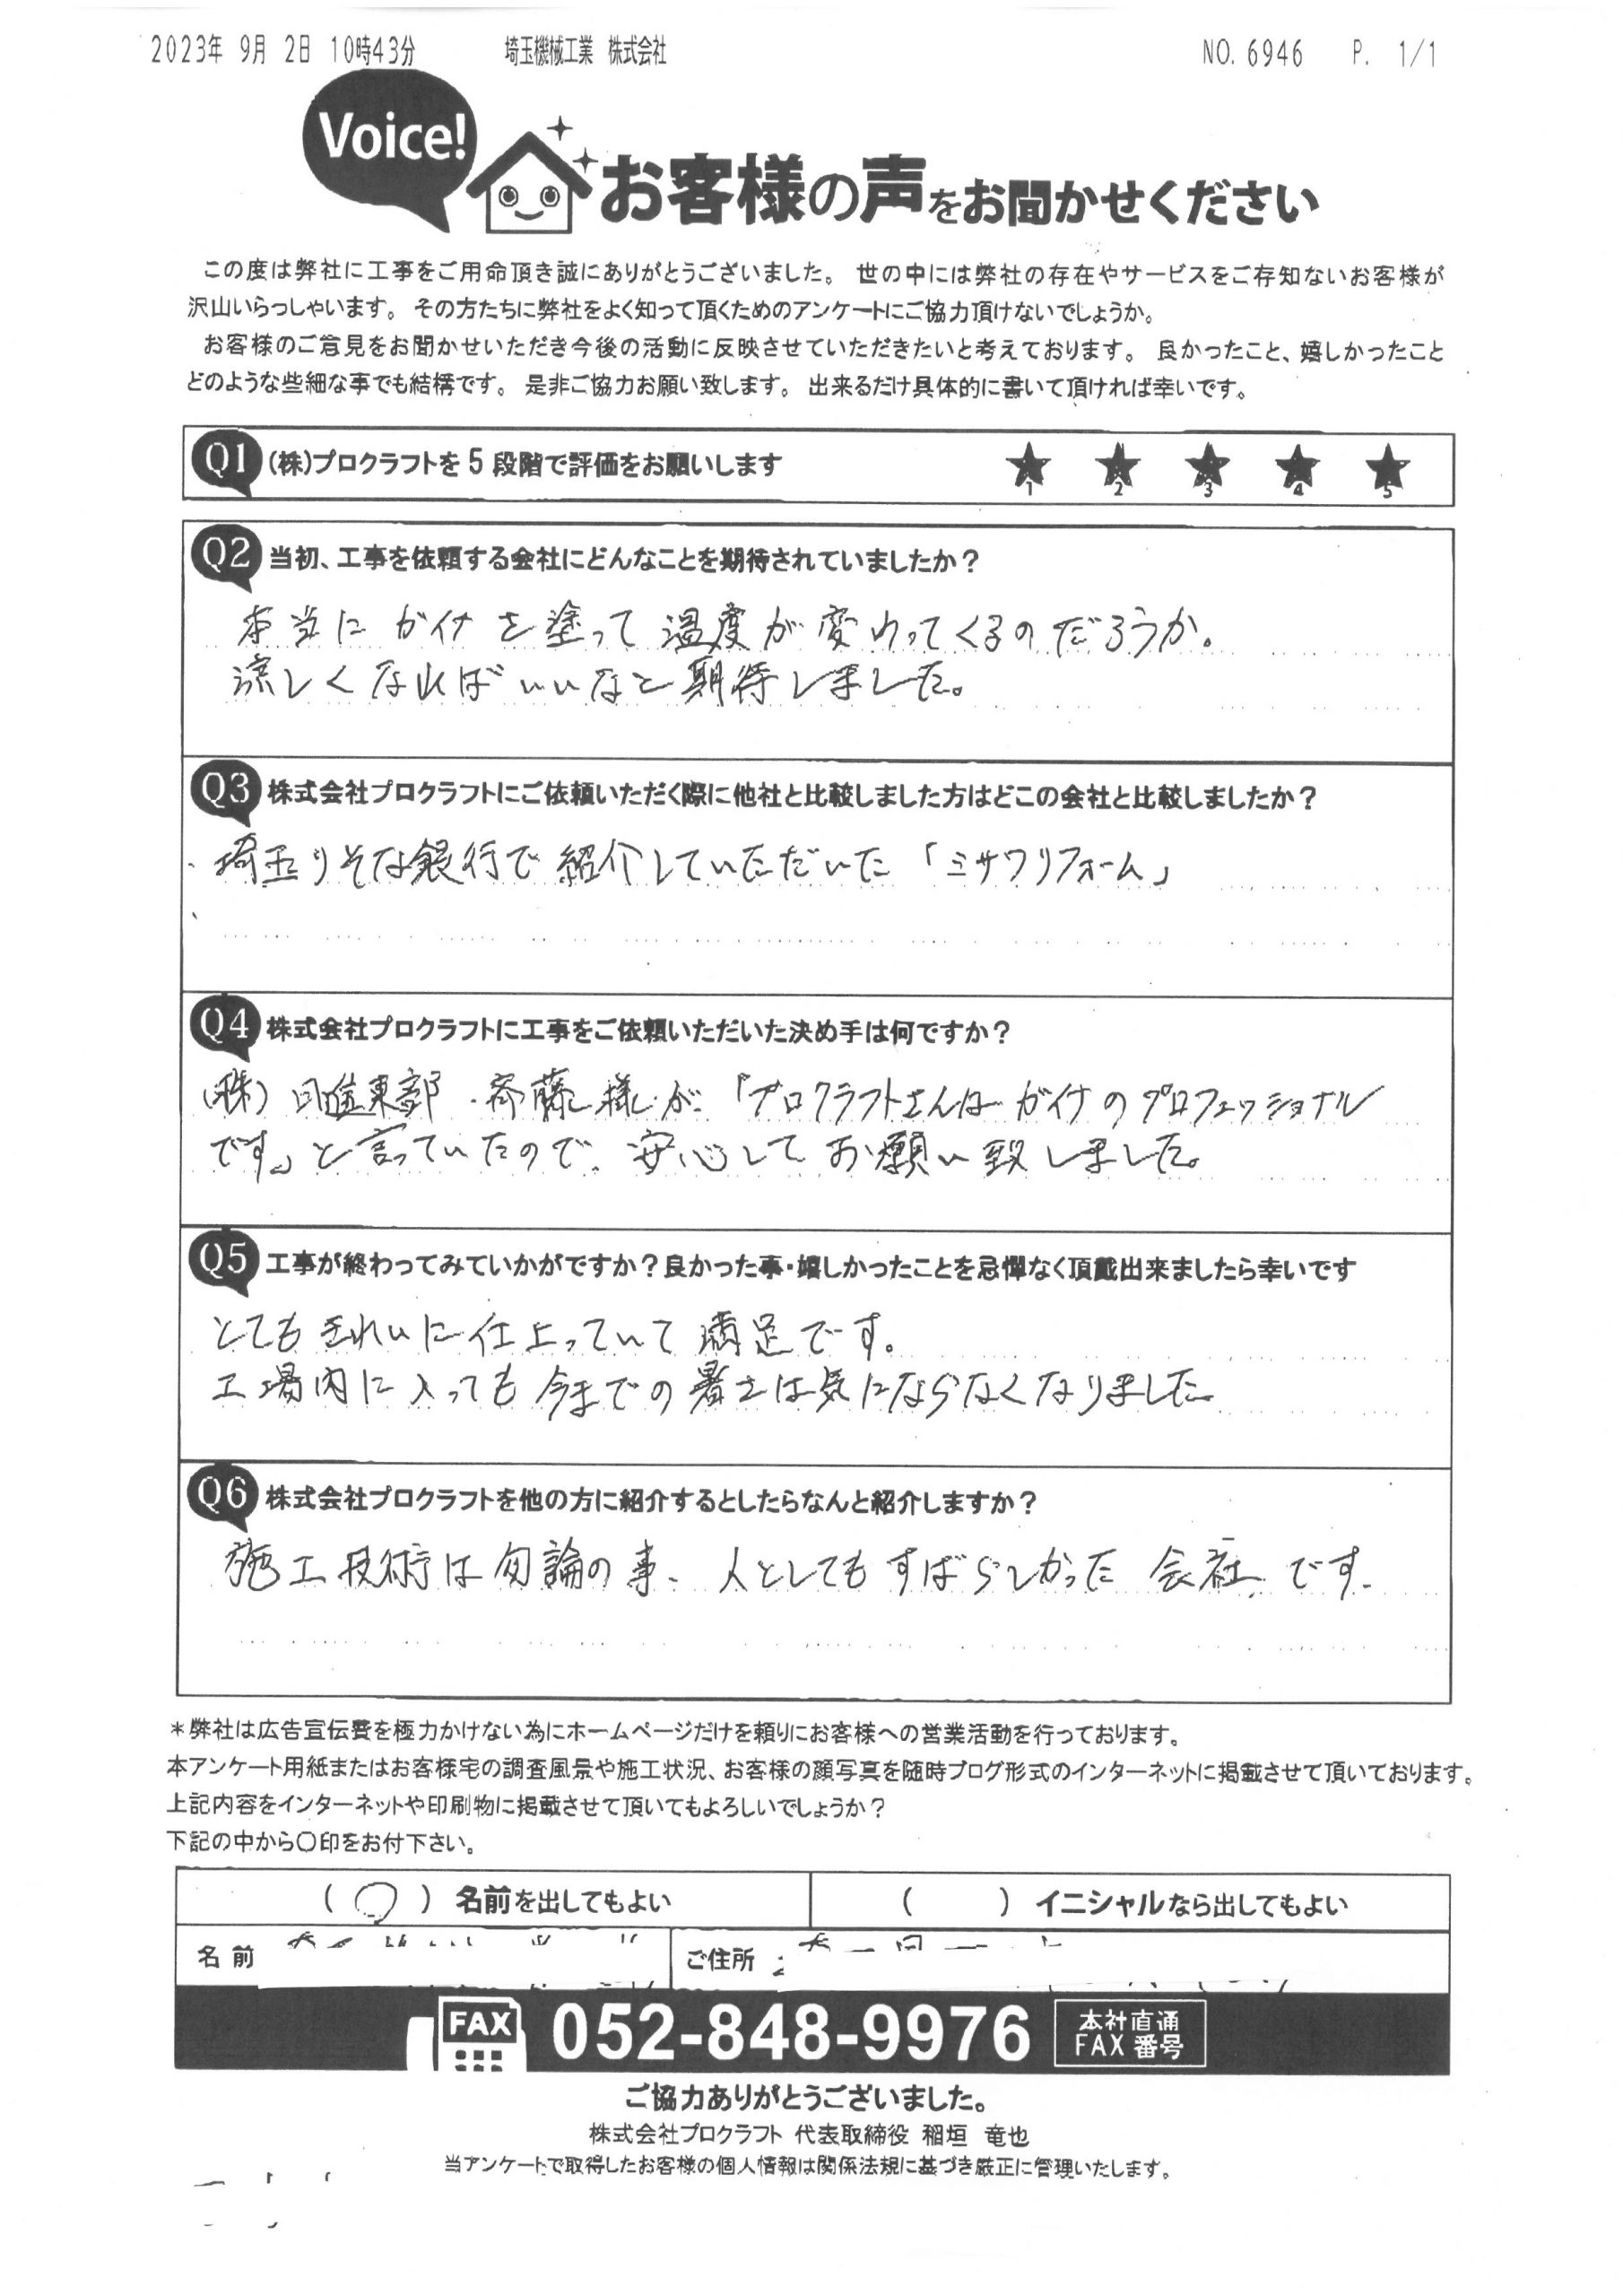 2023年 9月 2日 10時43分 埼玉機械工業 株式会社 NO. 6946 P. 1/1
Voice!
お客様の声をお聞かせください
この度は弊社に工事をご用命頂き誠にありがとうございました。 世の中には弊社の存在やサービスをご存知ないお客様が
沢山いらっしゃいます。 その方たちに弊社をよく知って頂くためのアンケートにご協力頂けないでしょうか。
お客様のご意見をお聞かせいただき今後の活動に反映させていただきたいと考えております。 良かったこと、嬉しかったこと
どのような些細な事でも結構です。 是非ご協力お願い致します。 出来るだけ具体的に書いて頂ければ幸いです。
Q1 (株)プロクラフトを5段階で評価をお願いします ★1 ★2 ★3 ★4 ★5
Q2 当初、工事を依頼する会社にどんなことを期待されていましたか？
本当に ガイナ を塗って 温度が変わってくるのだろうか。
涼しくなればいいなと期待しました。
Q3 株式会社プロクラフトにご依頼いただく際に他社と比較しました方はどこの会社と比較しましたか？
埼玉りそな銀行で紹介していただいた「ミサワリフォーム」
Q4 株式会社プロクラフトに工事をご依頼いただいた決め手は何ですか？
(株) 日進東部・斉藤様が「プロクラフトさんはガイナのプロフェッショナル
です」と言っていたので、安心してお願い致しました。
Q5 工事が終わってみていかがですか？良かった事・嬉しかったことを忌憚なく頂戴出来ましたら幸いです
とてもきれいに仕上っていて満足です。
工場内に入っても今までの暑さは気にならなくなりました
Q6 株式会社プロクラフトを他の方に紹介するとしたらなんと紹介しますか？
施工技術は勿論の事、人としてもすばらしかった会社です。
＊弊社は広告宣伝費を極力かけない為にホームページだけを頼りにお客様への営業活動を行っております。
本アンケート用紙またはお客様宅の調査風景や施工状況、お客様の顔写真を随時ブログ形式のインターネットに掲載させて頂いております。
上記内容をインターネットや印刷物に掲載させて頂いてもよろしいでしょうか？
下記の中から〇印をお付下さい。
( 〇 ) 名前を出してもよい ( ) イニシャルなら出してもよい
名前 ご住所
FAX 052-848-9976 本社直通 FAX番号
ご協力ありがとうございました。
株式会社プロクラフト 代表取締役 稲垣 竜也
当アンケートで取得したお客様の個人情報は関係法規に基づき厳正に管理いたします。